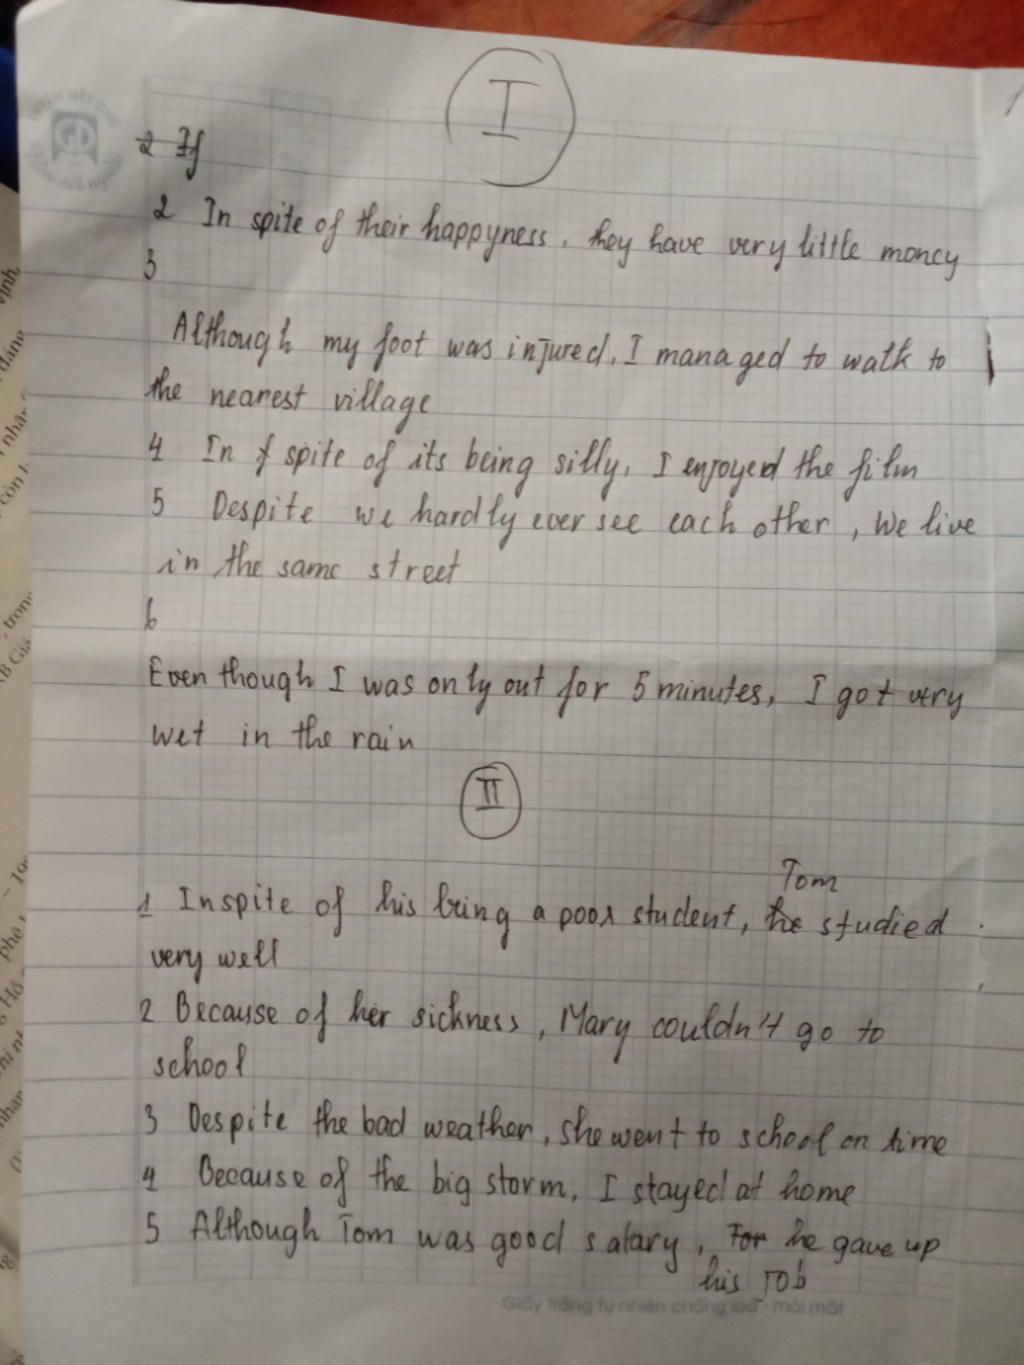 I
2 If
2 In spite of their happyness, they have very little money
3
Although my foot was injured, I managed to walk to
the nearest village
4 In spite of its being silly, I enjoyed the film
5 Despite we hardly ever see each other, We live
in the same street
6
Even though I was only out for 5 minutes, I got very
wet in the rain
II
Tom
1 Inspite of his being a poor student, he studied
very well
2 Because of her sickness, Mary couldn't go to
school
3 Despite the bad weather, she went to school on time
4 Because of the big storm, I stayed at home
5 Although Tom was good salary, For he gave up
his Job
Giấy trắng tự nhiên chống loá - mỏi mắt